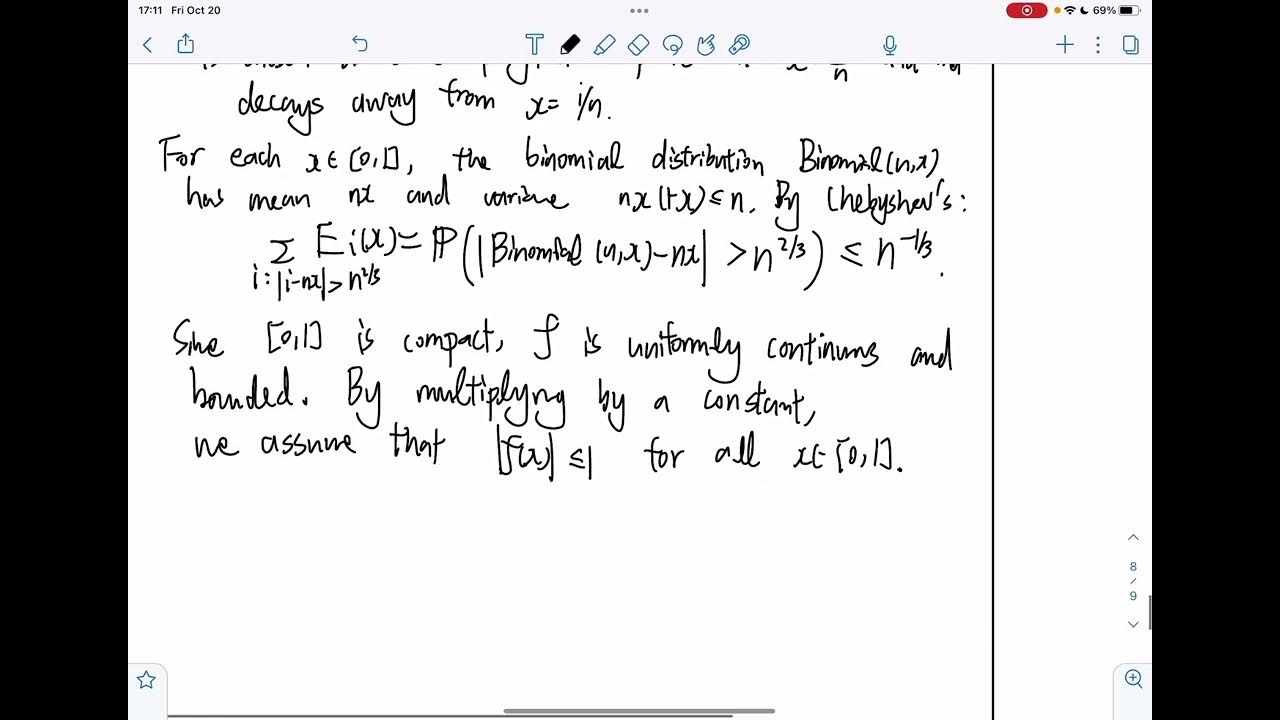 17:11 Fri Oct 20
69%
n
decays away from x = i/n.
For each x ∈ [0,1], the binomial distribution Binomial(n,x)
has mean nx and variance nx(1-x) ≤ n. By Chebyshev's:
Σ Ei(x) = ℙ(|Binomial(n,x)-nx| > n^{2/3}) ≤ n^{-1/3}.
i: |i-nx| > n^{2/3}
Sine [0,1] is compact, f is uniformly continuous and
bounded. By multiplying by a constant,
we assume that |f(x)| ≤ 1 for all x ∈ [0,1].
8
/
9